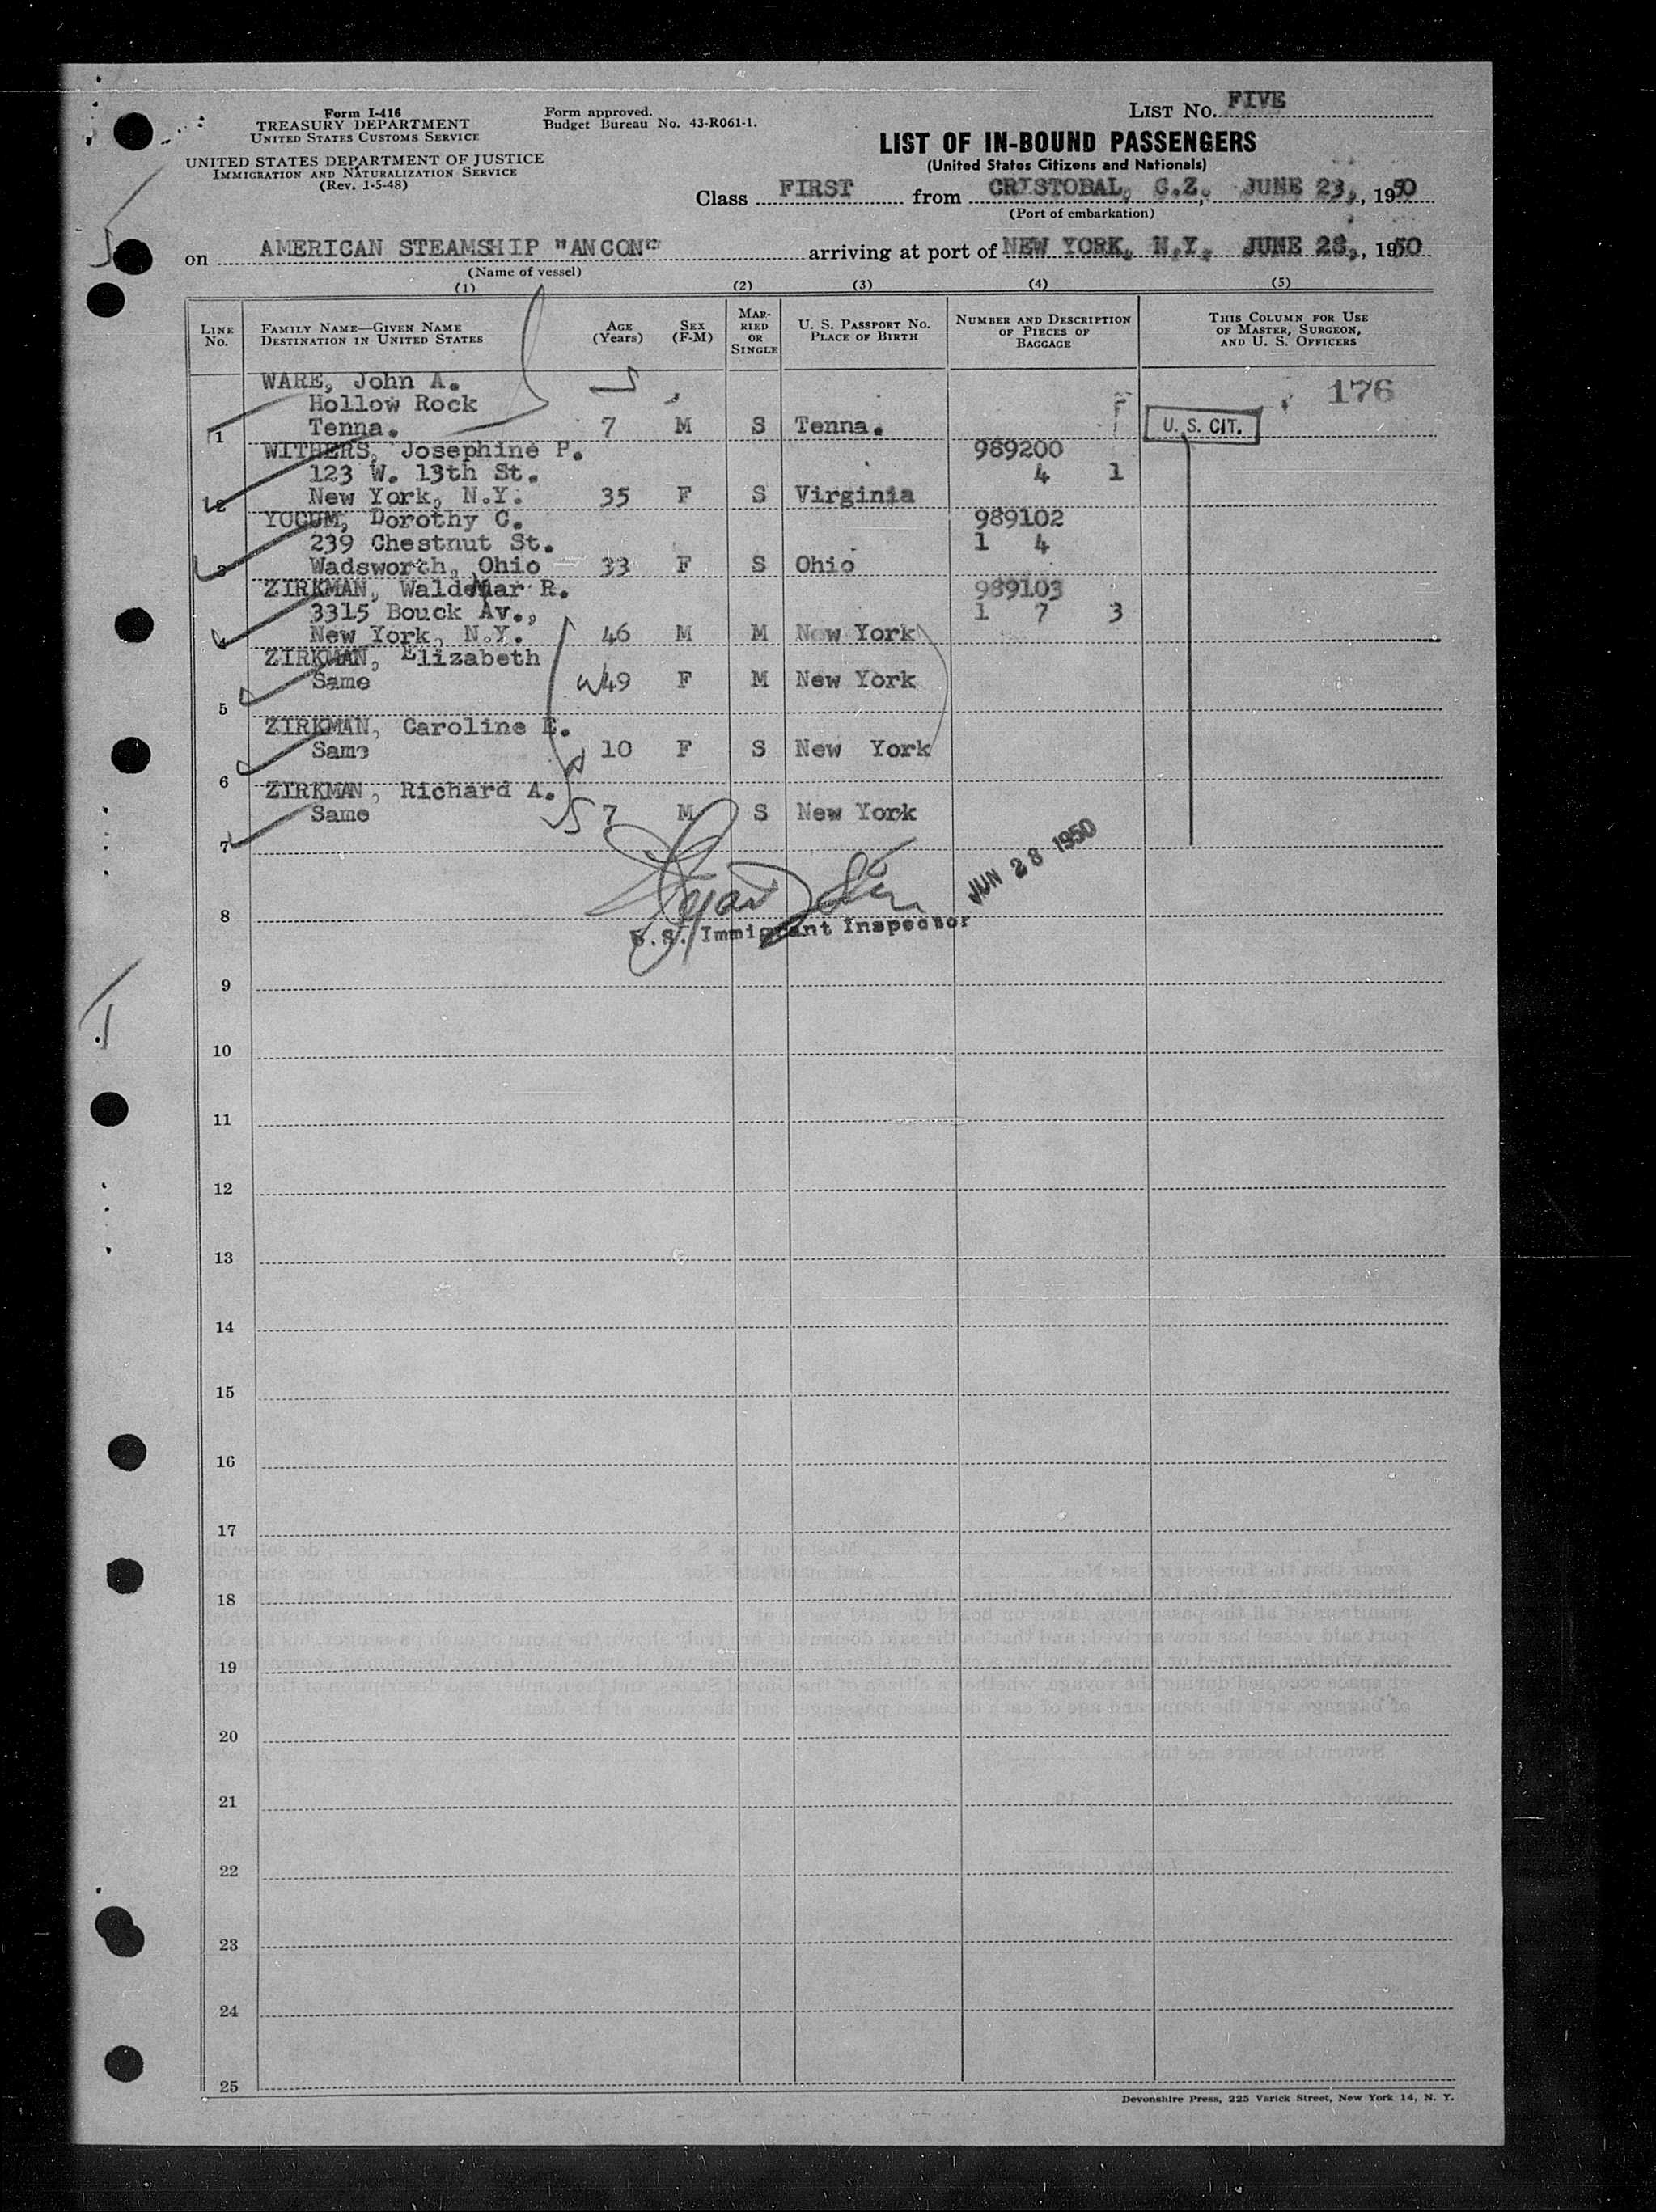 Form I-416
TREASURY DEPARTMENT
UNITED STATES CUSTOMS SERVICE
UNITED STATES DEPARTMENT OF JUSTICE
IMMIGRATION AND NATURALIZATION SERVICE
(Rev. 1-5-48)
Form approved.
Budget Bureau No. 43-R061-1.
LIST NO. FIVE
LIST OF IN-BOUND PASSENGERS
(United States Citizens and Nationals)
Class FIRST from CRISTOBAL, C.Z., JUNE 23, 1950
(Port of embarkation)
on AMERICAN STEAMSHIP "ANCON" arriving at port of NEW YORK, N.Y. JUNE 28, 1950
(Name of vessel)
(1) (2) (3) (4) (5)
LINE NO. FAMILY NAME—GIVEN NAME DESTINATION IN UNITED STATES AGE (Years) SEX (F-M) MARRIED OR SINGLE U. S. PASSPORT NO. PLACE OF BIRTH NUMBER AND DESCRIPTION OF PIECES OF BAGGAGE THIS COLUMN FOR USE OF MASTER, SURGEON, AND U. S. OFFICERS
WARE, John A. 176
Hollow Rock
1 Tenna. 7 M S Tenna. U. S. CIT.
WITHERS, Josephine P. 989200
123 W. 13th St. 4 1
2 New York, N.Y. 35 F S Virginia
YOCUM, Dorothy C. 989102
239 Chestnut St. 1 4
3 Wadsworth, Ohio 33 F S Ohio
ZIRKMAN, Waldemar R. 989103
3315 Bouck Av., 1 7 3
4 New York, N.Y. 46 M M New York
ZIRKMAN, Elizabeth
Same W 49 F M New York
5
ZIRKMAN, Caroline E.
Same 10 F S New York
6
ZIRKMAN, Richard A.
Same 7 M S New York
7
JUN 28 1950
8
U.S. Immigrant Inspector
9
10
11
12
13
14
15
16
17
18
19
20
21
22
23
24
25
Devonshire Press, 225 Varick Street, New York 14, N. Y.